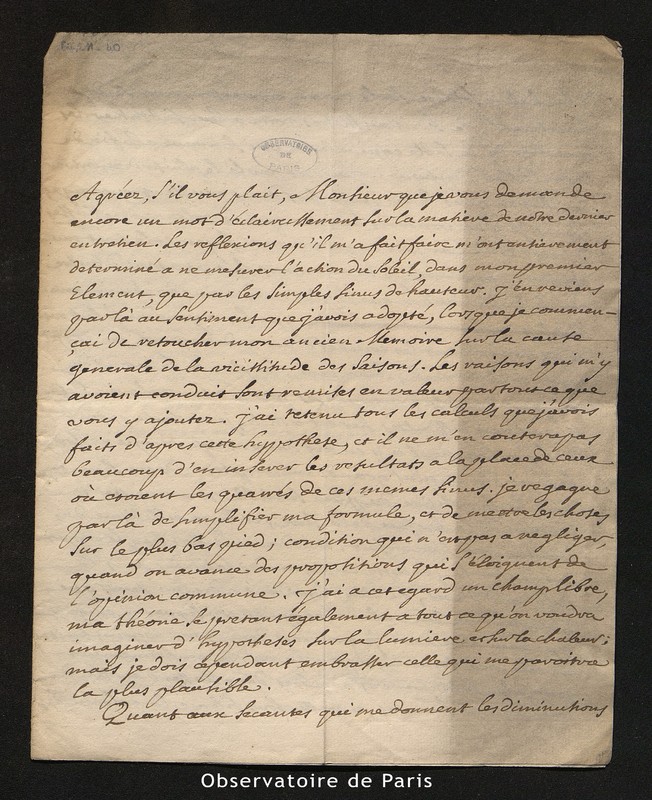 OBSERVATOIRE
DE
PARIS
Agréez, s'il vous plait, Monsieur que je vous demande
encore un mot d'éclaircissement sur la matiere de notre dernier
entretien. Les reflexions qu'il m'a fait faire m'ont entierement
determiné a ne mesurer l'action du Soleil, dans mon premier
Element, que par les simples sinus de hauteur. j'en reviens
par là au sentiment que j'avois adopté, lorsque je commen-
çai de retoucher mon ancien Memoire sur la cause
generale de la vicissitude des Saisons. Les raisons qui m'y
avoient conduit sont remises en valeur par tout ce que
vous y ajoutez. j'ai retenu tous les calculs que j'avois
faits d'apres cette hypothese, et il ne m'en coutera pas
beaucoup d'en inserer les resultats a la place de ceux
où etoient les quarrés de ces memes sinus. je regagne
par là de simplifier ma formule, et de mettre les choses
sur le plus bas pied; condition qui n'est pas a negliger,
quand on avance des propositions qui s'éloignent de
l'opinion commune. j'ai a cet egard un champ libre,
ma théorie se pretant également a tout ce qu'on voudra
imaginer d'hypotheses sur la lumiere et sur la chaleur;
mais je dois cependant embrasser celle qui me paroitra
la plus plausible.
Quant aux secantes qui me donnent les diminutions
Observatoire de Paris